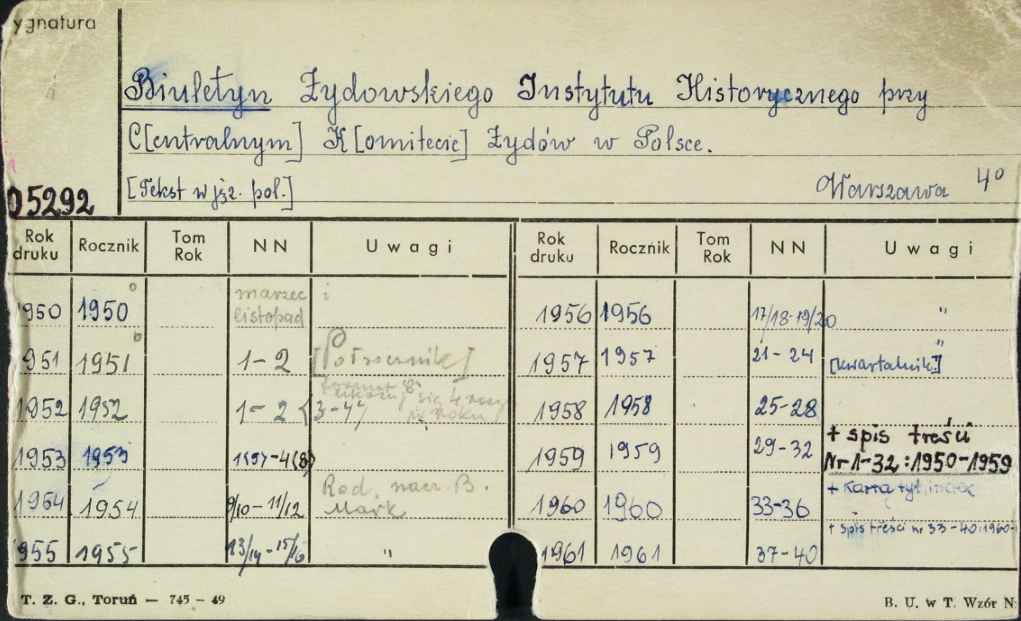 ygnatura
Biuletyn Żydowskiego Instytutu Historycznego przy
C[entralnym] K[omitecie] Żydów w Polsce.
[Tekst w jęz. pol.] Warszawa 4°
05292
Rok druku Rocznik Tom Rok NN Uwagi Rok druku Rocznik Tom Rok NN Uwagi
1950 1950 marzec i listopad 1956 1956 17/18-19/20 "
951 1951 1-2 [Półrocznik] 1957 1957 21-24 [kwartalnik] "
1952 1952 1-2 (3-4) się 4 razy w roku 1958 1958 25-28
1953 1953 -4(8) 1959 1959 29-32 + spis treści Nr 1-32: 1950-1959
1954 1954 9/10-11/12 Red. nacz. B. Mark 1960 1960 33-36 + karta tyt.
955 1955 13/14-15/16 " 1961 1961 37-40 + spis treści nr 33-40: 1960-
T. Z. G., Toruń — 745 - 49 B. U. w T. Wzór N